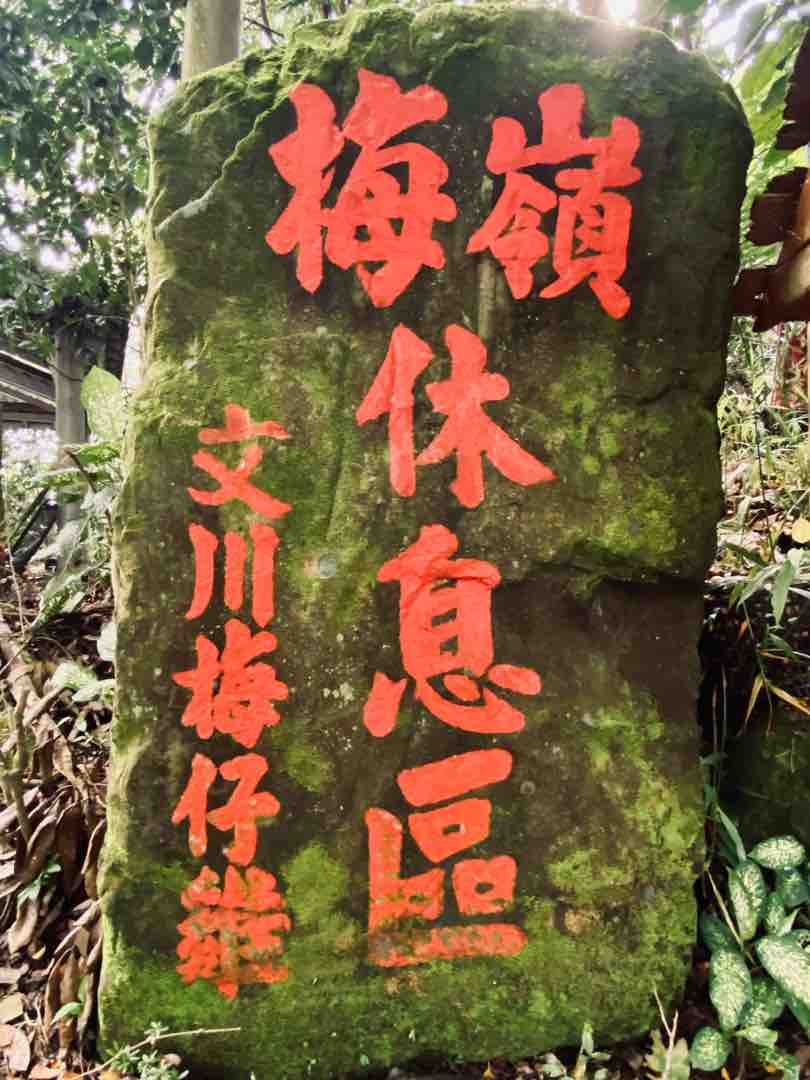 梅嶺
休息區
文川梅仔雞